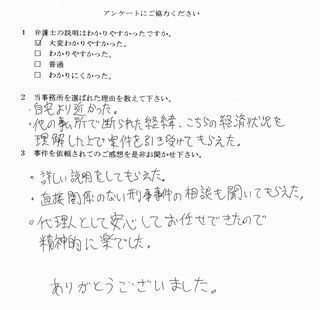 アンケートにご協力ください
1 弁護士の説明はわかりやすかったですか。
☑ 大変わかりやすかった。
□ わかりやすかった。
□ 普通
□ わかりにくかった。
2 当事務所を選ばれた理由を教えて下さい。
・自宅より近かった。
・他の事務所で断られた経緯、こちらの経済状況を
理解した上で案件を引き受けてもらえた。
3 事件を依頼されてのご感想を是非お聞かせ下さい。
・詳しい説明をしてもらえた。
・直接関係のない刑事事件の相談も聞いてもらえた。
・代理人として安心してお任せできたので
精神的に楽でした。
ありがとうございました。